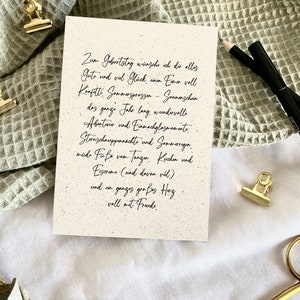 Zum Geburtstag wünsche ich dir alles
Gute und viel Glück, einen Eimer voll
Konfetti, Sommersprossen - Sonnenschein
das ganze Jahr lang, wundervolle
Abenteuer und Einmachglasmomente,
Sternschnuppennächte und Sommerregen,
müde Füße vom Tanzen, Kuchen und
Eiscreme (und davon viel)
und ein ganzes großes Herz
voll mit Freude